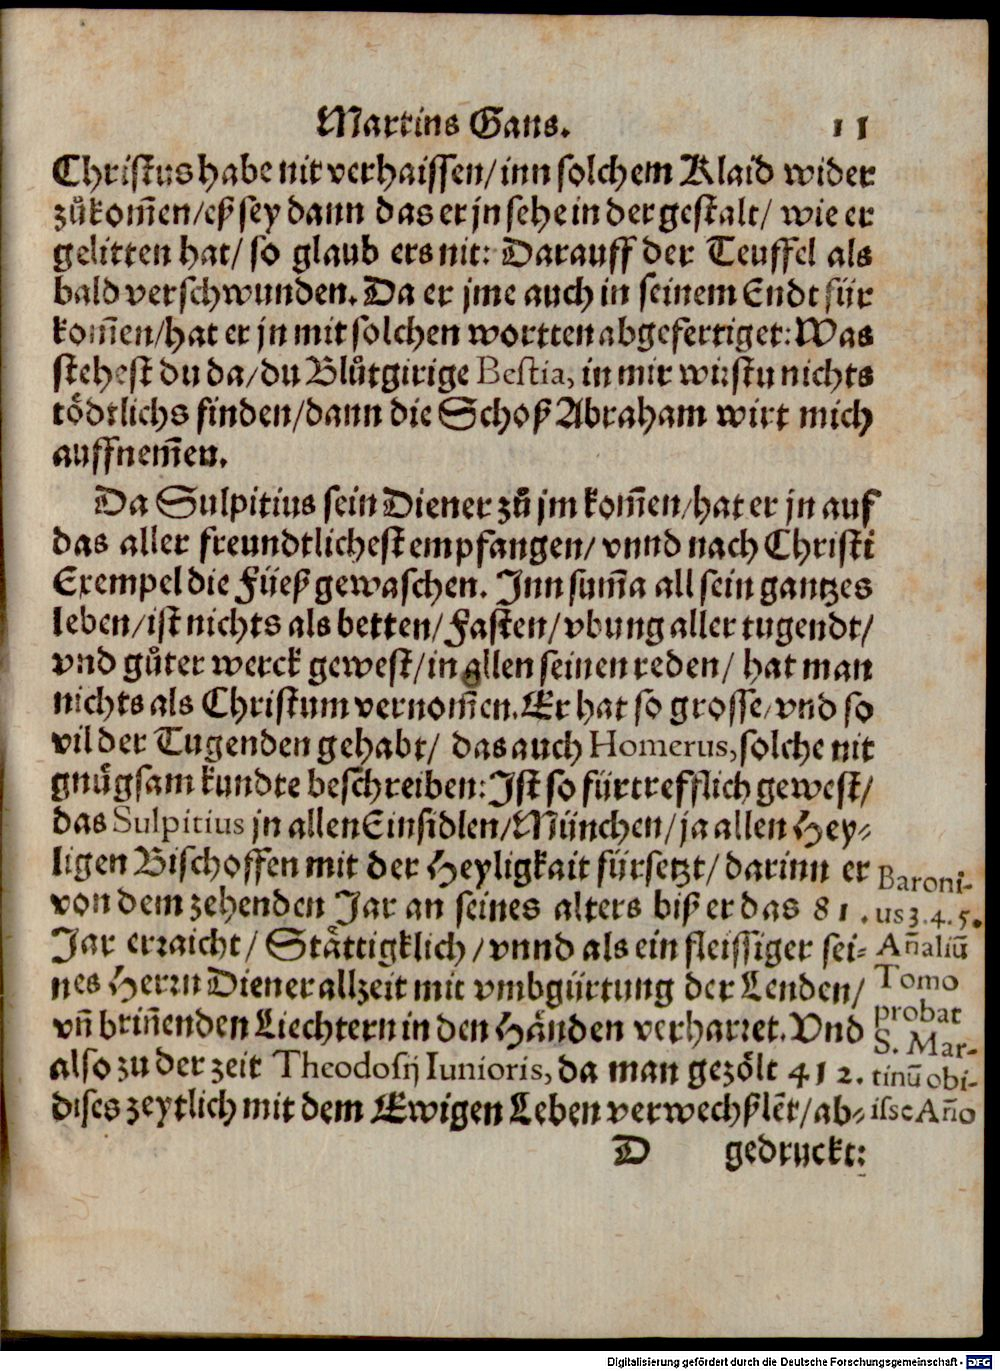 Martins Gans. 11
Christus habe nit verhaissen/ inn solchem Klaid wider
zůkom̃en/ eß sey dann das er jn sehe in der gestalt/ wie er
gelitten hat/ so glaub ers nit: Darauff der Teuffel als
bald verschwunden. Da er jme auch in seinem Endt für
kom̃en/ hat er jn mit solchen wortten abgefertiget: Was
stehest du da/ du Blůtgirige Bestia, in mir wirstu nichts
tödtlichs finden/ dann die Schoß Abraham wirt mich
auffnem̃en.
Da Sulpitius sein Diener zů jm kom̃en/ hat er jn auf
das aller freundtlichest empfangen/ vnnd nach Christi
Exempel die Füeß gewaschen. Inn sum̃a all sein gantzes
leben/ ist nichts als betten/ Fasten/ vbung aller tugendt/
vnd gůter werck gewest/ in allen seinen reden/ hat man
nichts als Christum vernom̃en. Er hat so grosse/ vnd so
vil der Tugenden gehabt/ das auch Homerus, solche nit
gnůgsam kundte beschreiben: Ist so fürtrefflich gewest/
das Sulpitius jn allen Einsidlen/ München/ ja allen Hey-
ligen Bischoffen mit der Heyligkait fürsetzt/ darinn er
von dem zehenden Jar an seines alters biß er das 81.
Jar erzaicht/ Stättigklich/ vnnd als ein fleissiger sei-
nes Herrn Diener allzeit mit vmbgürtung der Lenden/
vñ brin̄enden Liechtern in den Händen verharret. Vnd
also zu der zeit Theodosij Iunioris, da man gezölt 412.
dises zeytlich mit dem Ewigen Leben verwechßlēt/ ab-
Baroni-
us 3. 4. 5.
Añaliū
Tomo
probat
S. Mar-
tinū obi-
isse Año
D gedruckt:
Digitalisierung gefördert durch die Deutsche Forschungsgemeinschaft - DFG